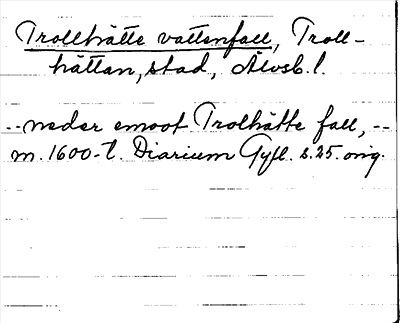 Trollhätte vattenfall, Troll-
hättan, stad, Älvsb. l.
--neder emoot Trolhätte fall, --
m. 1600-t. Diarium Gyll. s. 25. orig.